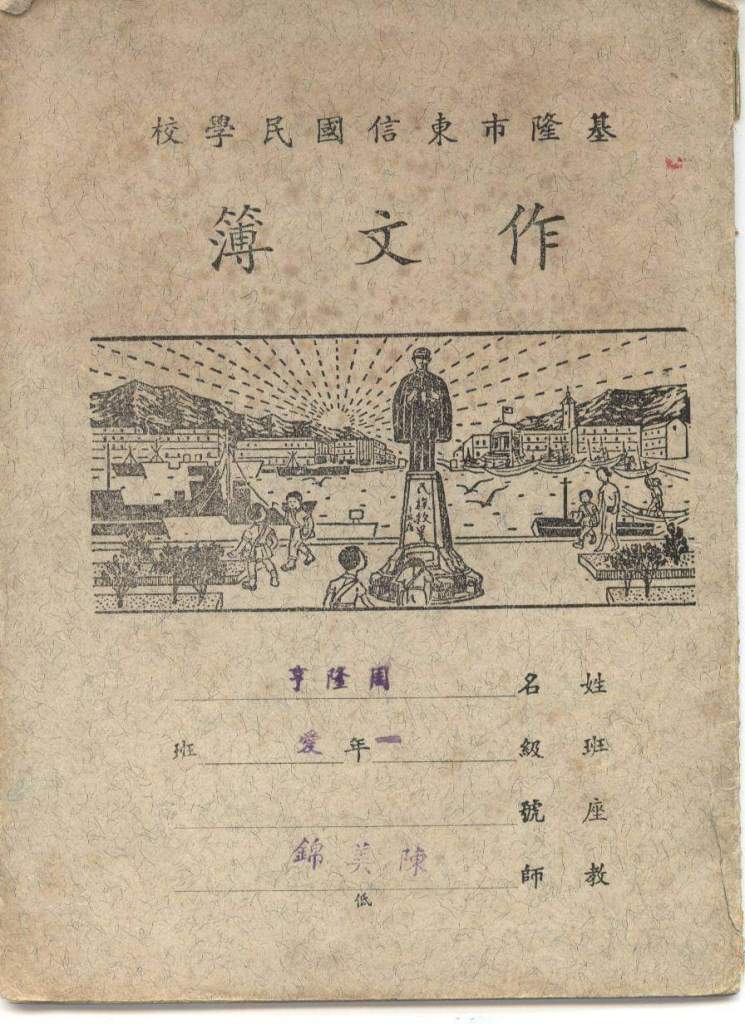 基隆市東信國民學校
作文簿
民族救星
姓名 周隆亨
班級 一年愛班
座號
教師 陳美錦
低